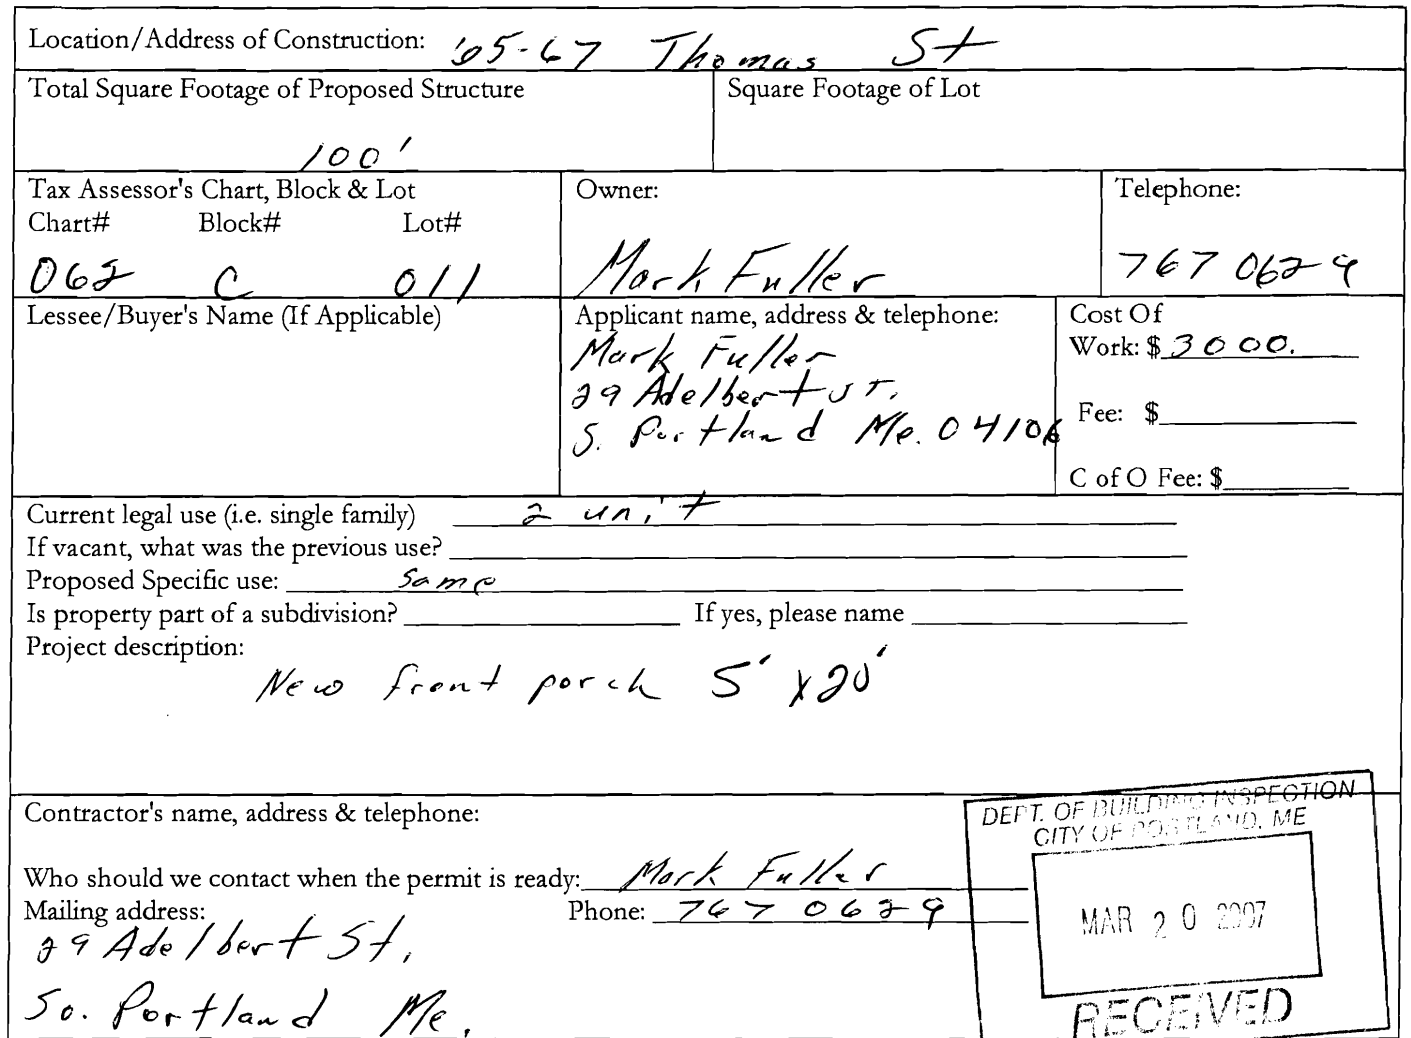 Location/Address of Construction: 65-67 Thomas St
Total Square Footage of Proposed Structure
100'
Square Footage of Lot
Tax Assessor's Chart, Block & Lot
Chart# Block# Lot#
062 C 011
Owner:
Mark Fuller
Telephone:
767 0629
Lessee/Buyer's Name (If Applicable)
Applicant name, address & telephone:
Mark Fuller
29 Adelbert ST.
S. Portland Me. 04106
Cost Of
Work: $ 3000.
Fee: $
C of O Fee: $
Current legal use (i.e. single family) 2 unit
If vacant, what was the previous use?
Proposed Specific use: Same
Is property part of a subdivision? If yes, please name
Project description:
New front porch 5' x 20'
Contractor's name, address & telephone:
Who should we contact when the permit is ready: Mark Fuller
Mailing address: Phone: 767 0629
29 Adelbert St,
So. Portland Me.
DEPT. OF BUILDING INSPECTION
CITY OF PORTLAND, ME
MAR 20 2007
RECEIVED